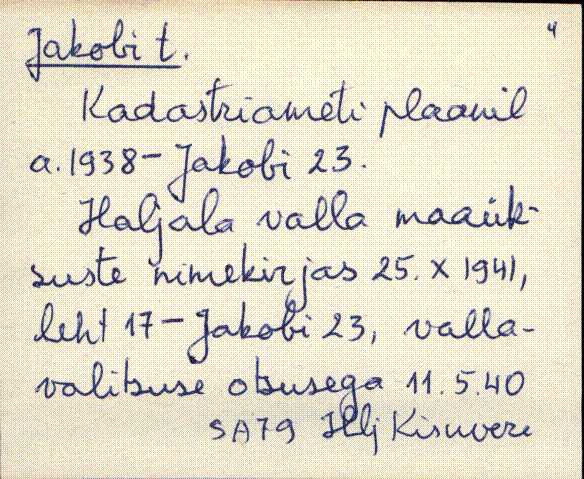 4
Jakobi t.
Kadastriameti plaanil
a. 1938 – Jakobi 23.
Haljala valla maaük-
suste nimekirjas 25. X 1941,
leht 17 – Jakobi 23, valla-
valitsuse otsusega 11.5.40
SA79 Hlj Kisuvere